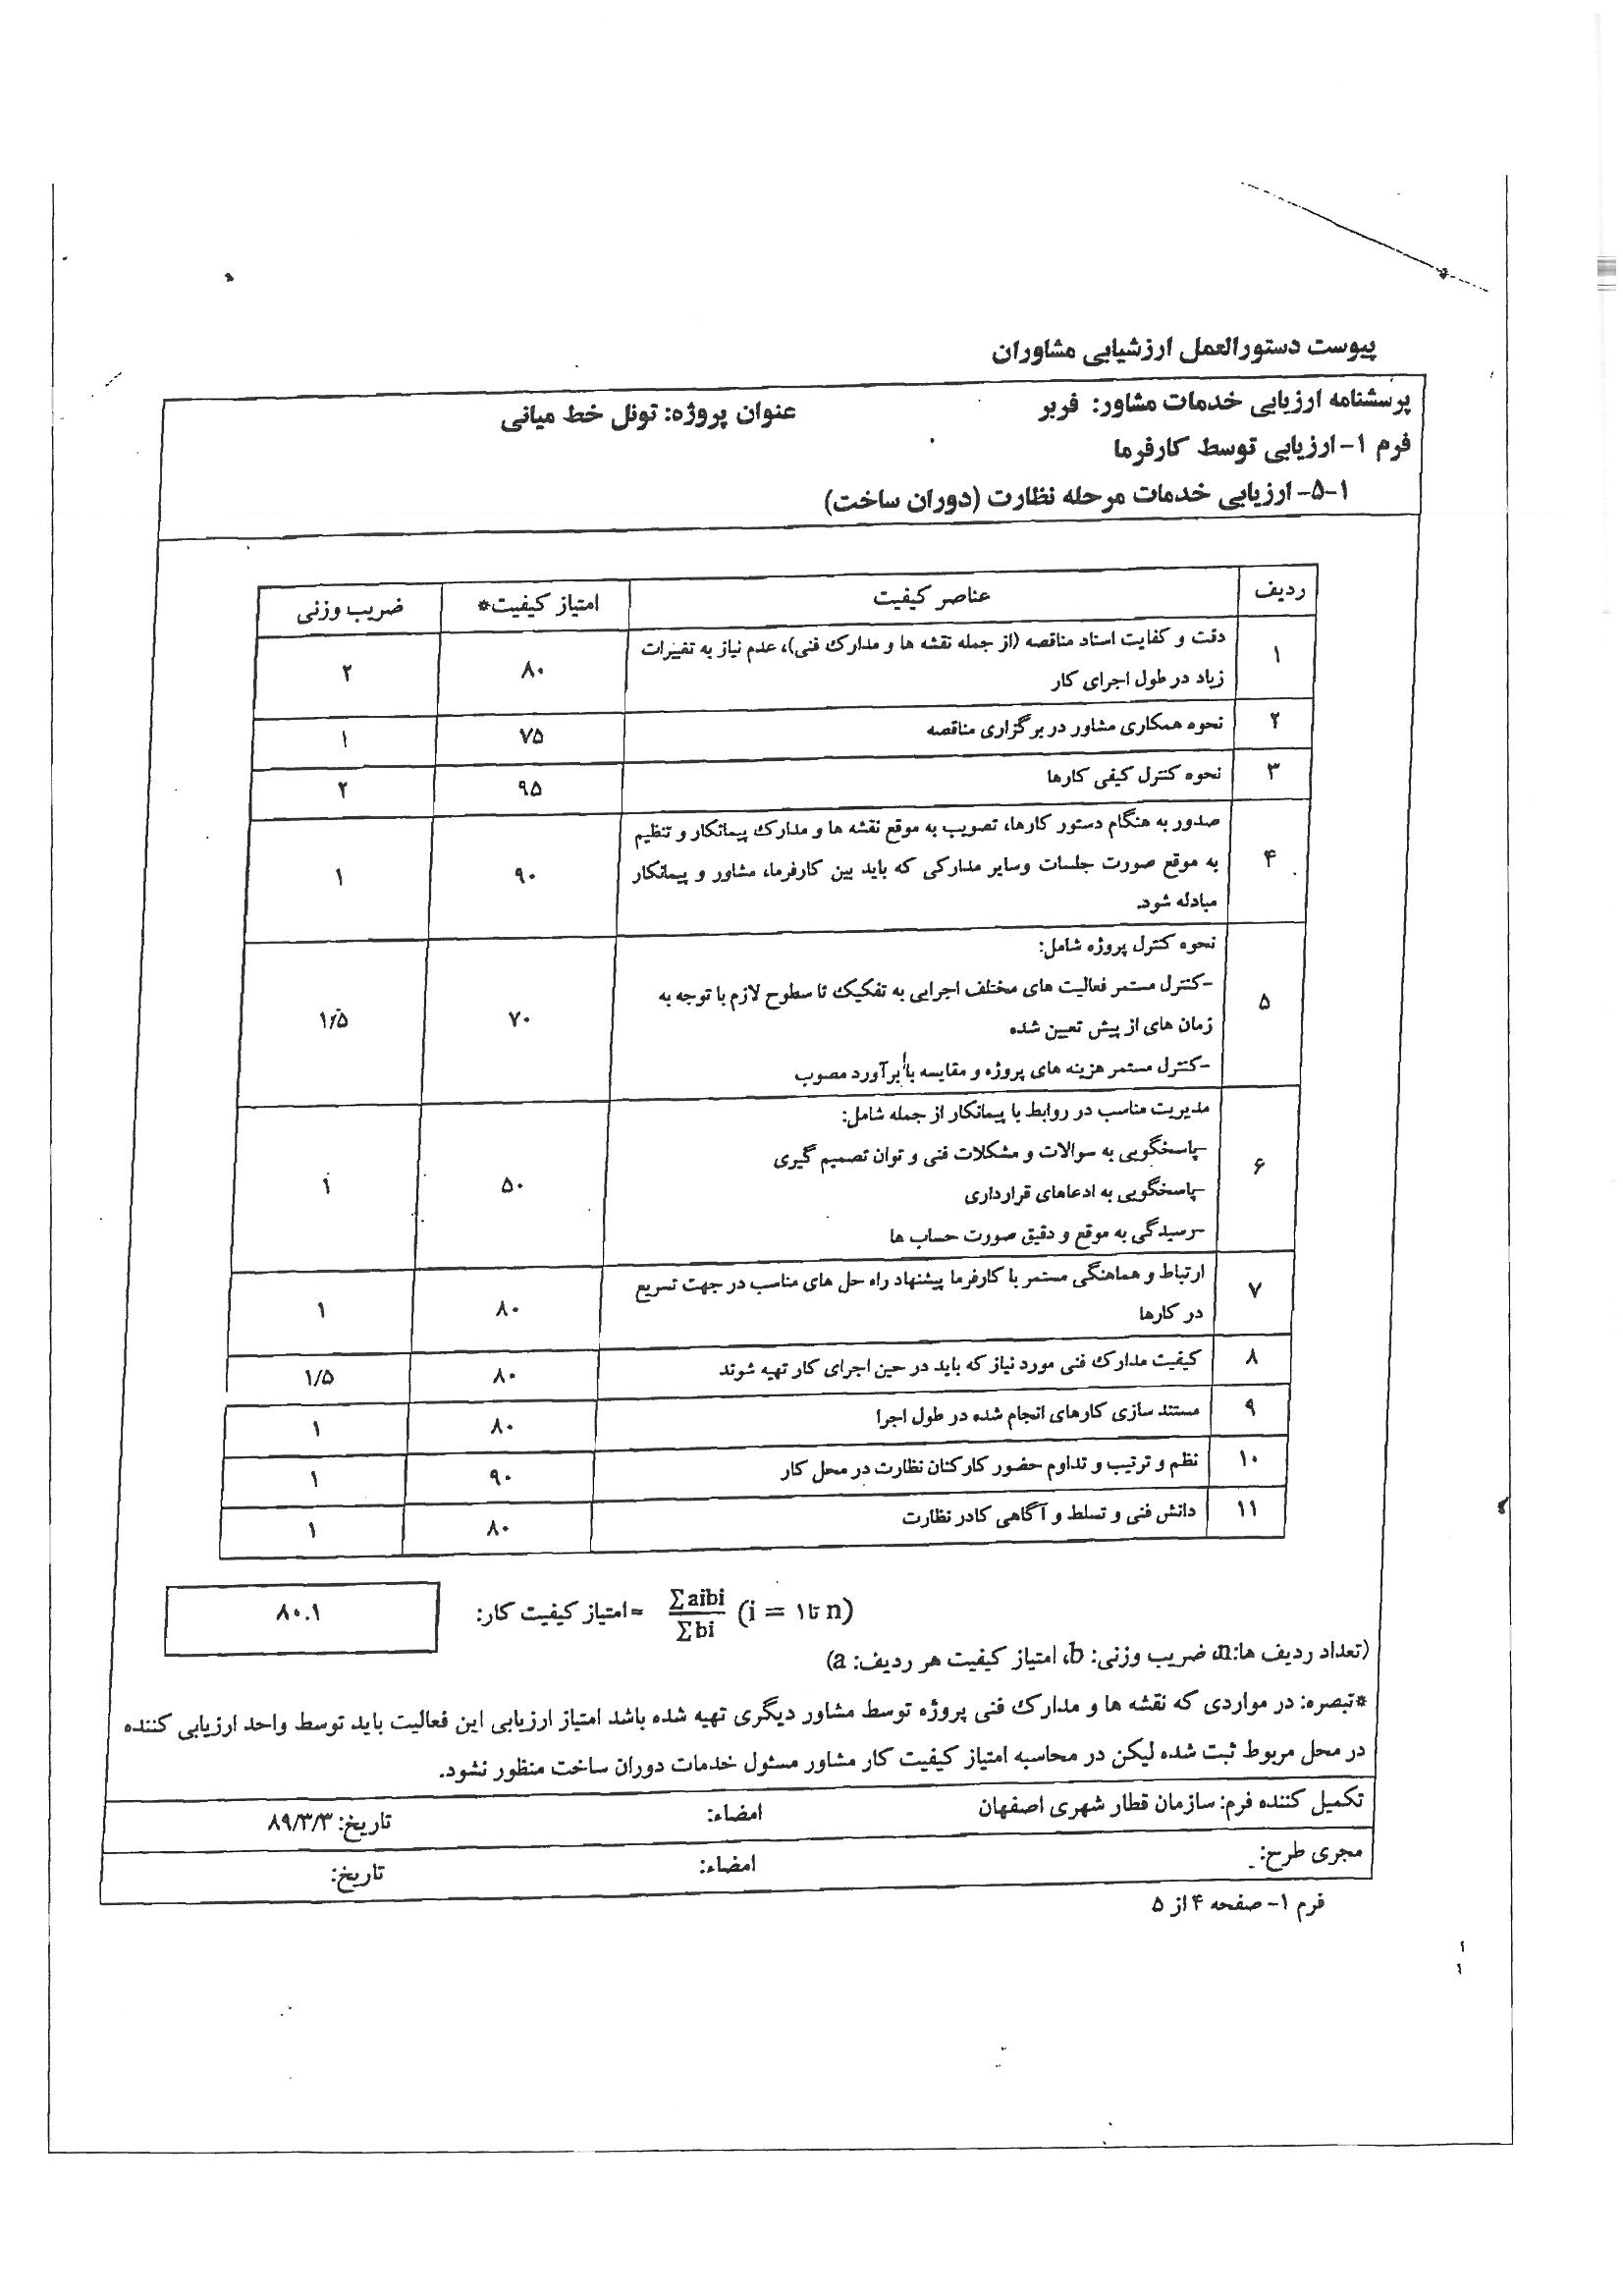 پیوست دستورالعمل ارزشیابی مشاوران
پرسشنامه ارزیابی خدمات مشاور: فربر عنوان پروژه: تونل خط میانی
فرم ۱- ارزیابی توسط کارفرما
۵-۱- ارزیابی خدمات مرحله نظارت (دوران ساخت)
ردیف عناصر کیفیت امتیاز کیفیت* ضریب وزنی
۱ دقت و کفایت اسناد مناقصه (از جمله نقشه ها و مدارک فنی)، عدم نیاز به تغییرات
زیاد در طول اجرای کار ۸۰ ۲
۲ نحوه همکاری مشاور در برگزاری مناقصه ۷۵ ۱
۳ نحوه کنترل کیفی کارها ۹۵ ۲
۴ صدور به هنگام دستور کارها، تصویب به موقع نقشه ها و مدارک پیمانکار و تنظیم
به موقع صورت جلسات وسایر مدارکی که باید بین کارفرما، مشاور و پیمانکار
مبادله شود. ۹۰ ۱
۵ نحوه کنترل پروژه شامل:
-کنترل مستمر فعالیت های مختلف اجرایی به تفکیک تا سطوح لازم با توجه به
زمان های از پیش تعیین شده
-کنترل مستمر هزینه های پروژه و مقایسه با برآورد مصوب ۷۰ ۱/۵
۶ مدیریت مناسب در روابط با پیمانکار از جمله شامل:
-پاسخگویی به سوالات و مشکلات فنی و توان تصمیم گیری
-پاسخگویی به ادعاهای قرارداری
-رسیدگی به موقع و دقیق صورت حساب ها ۵۰ ۱
۷ ارتباط و هماهنگی مستمر با کارفرما پیشنهاد راه حل های مناسب در جهت تسریع
در کارها ۸۰ ۱
۸ کیفیت مدارک فنی مورد نیاز که باید در حین اجرای کار تهیه شوند ۸۰ ۱/۵
۹ مستند سازی کارهای انجام شده در طول اجرا ۸۰ ۱
۱۰ نظم و ترتیب و تداوم حضور کارکنان نظارت در محل کار ۹۰ ۱
۱۱ دانش فنی و تسلط و آگاهی کادر نظارت ۸۰ ۱
(i = ۱ تا n) ∑aibi / ∑bi =امتیاز کیفیت کار: ۸۰.۱
(تعداد ردیف ها:n، ضریب وزنی: b، امتیاز کیفیت هر ردیف: a)
*تبصره: در مواردی که نقشه ها و مدارک فنی پروژه توسط مشاور دیگری تهیه شده باشد امتیاز ارزیابی این فعالیت باید توسط واحد ارزیابی کننده
در محل مربوط ثبت شده لیکن در محاسبه امتیاز کیفیت کار مشاور مسئول خدمات دوران ساخت منظور نشود.
تکمیل کننده فرم: سازمان قطار شهری اصفهان امضاء: تاریخ: ۸۹/۳/۳
مجری طرح: امضاء: تاریخ:
فرم ۱- صفحه ۴ از ۵